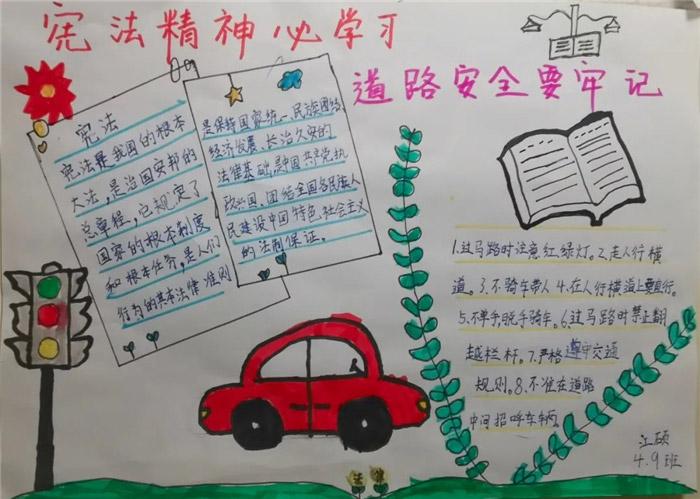 宪法精神必学习
道路安全要牢记
宪法
宪法是我国的根本
大法,是治国安邦的
总章程,它规定了
国家的根本制度
和根本任务,是人们
行为的基本法律准则
是保持国家统一、民族团结、
经济发展、长治久安的
法律基础,是中国共产党执
政兴国、团结全国各民族人
民建设中国特色社会主义
的法制保证。
1.过马路时注意红,绿灯。2.走人行横
道。3.不骑车带人 4.在人行横道上要直行。
5.不单手,脱手骑车。6.过马路时禁止翻
越栏杆。7.严格遵守交通
规则。8.不准在道路
中间招呼车辆。
江硕
4.9班
法律